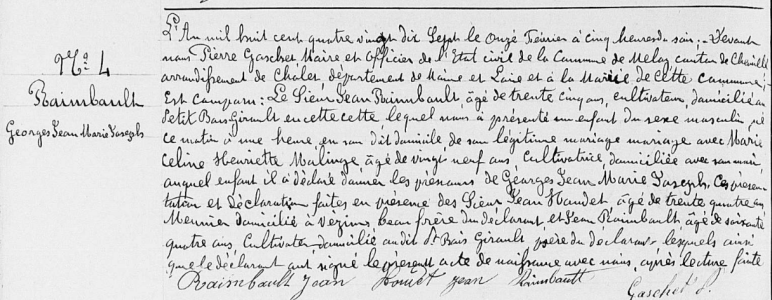 No 4
Raimbault
Georges Jean Marie Joseph
L'An mil huit cent quatre vingt dix Sept le Onze Février à Cinq heures du soir ; Devant
nous Pierre Gaschet Maire et Officier de l'Etat civil de la Commune de Melay canton de Chemillé
arrondissement de Cholet département de Maine et Loire et à la Mairie de cette commune,
Est comparu : Le Sieur Jean Raimbault, âgé de trente cinq ans, cultivateur, domicilié au
Petit Bois Girault en cette cette lequel nous a présenté un enfant du sexe masculin né
ce matin à une heure, en son dit domicile, de son légitime mariage mariage avec Marie
Celine Henriette Malinge âgée de vingt neuf ans, Cultivatrice, domiciliée avec son mari,
auquel enfant il a déclaré donner les prénoms de Georges Jean Marie Joseph, Ces présen-
tation et Déclaration faites en présence des Sieur Jean Houdet, âgé de trente quatre ans
Meunier domicilié à Vezins, beau frère du déclarant, et Jean Raimbault âgé de soixante
quatre ans, Cultivateur domicilié au dit Pt Bois Girault père du déclarant lesquels ainsi
que le déclarant ont signé le présent acte de naissance avec nous, après lecture faite
Raimbault Jean Houdet Jean Raimbault
Gaschet P.